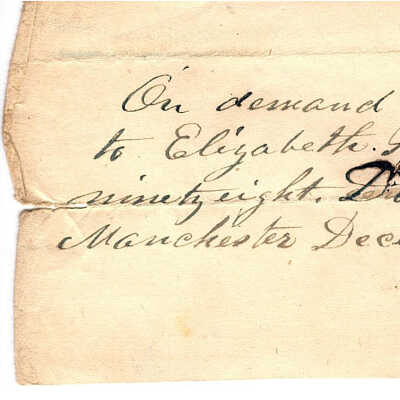 On demand
to Elizabeth.
ninetyeight.
Manchester Dec